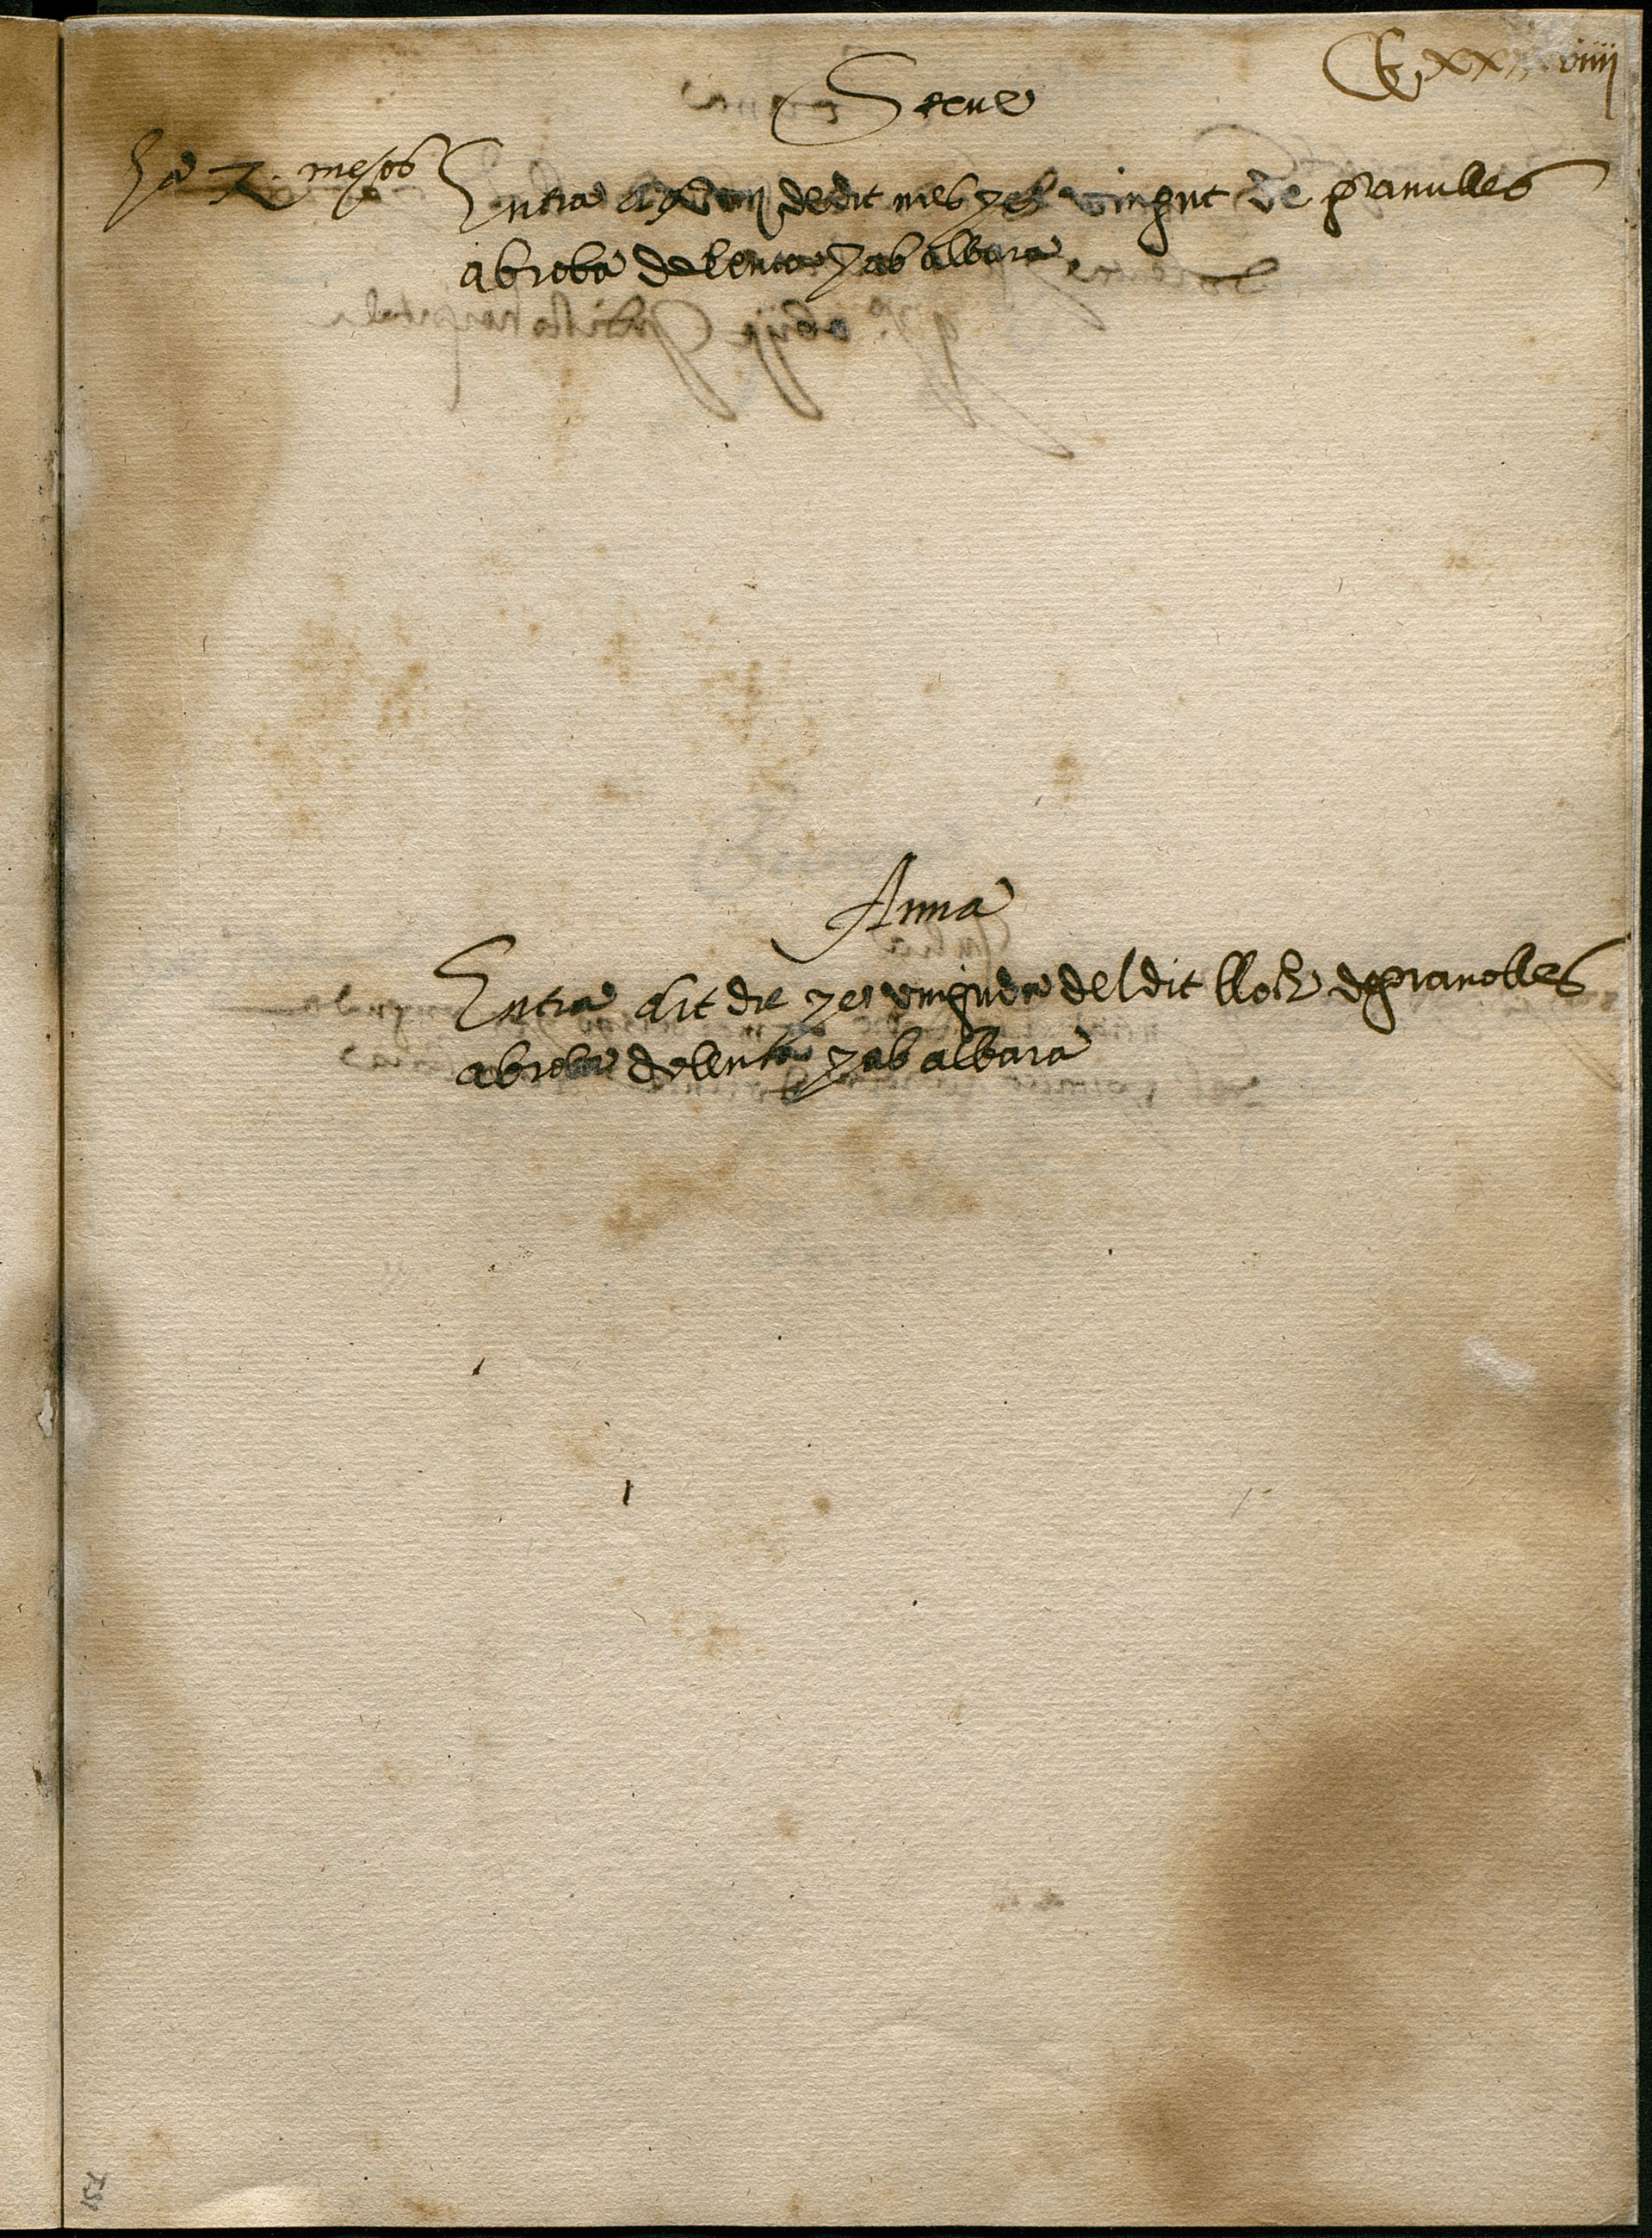 Steve
Ha 7. mesos
Entra a xviiij de dit mes y es vingut de granulles
ab roba dolenta y ab albara
Anna
Entra dit die y es vinguda del dit lloch de granolles
ab roba dolenta y ab albara